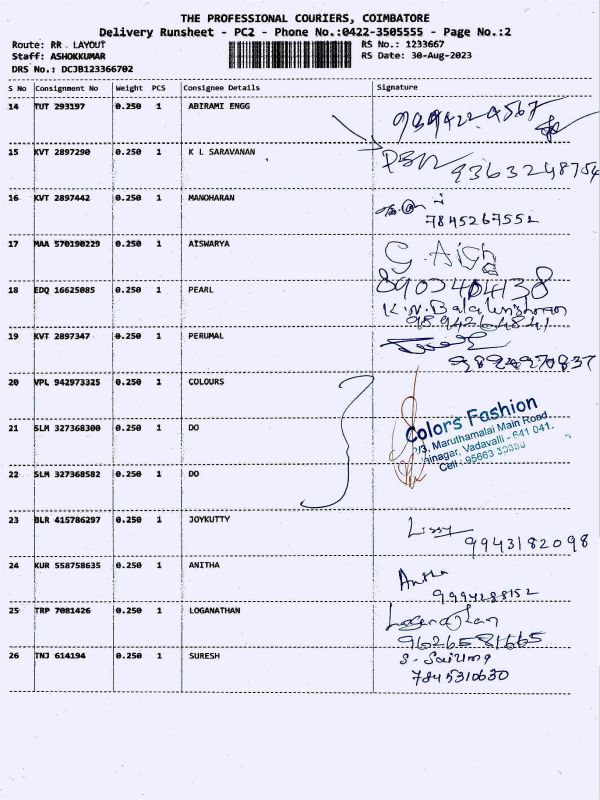 THE PROFESSIONAL COURIERS, COIMBATORE
Delivery Runsheet - PC2 - Phone No.:0422-3505555 - Page No.:2
Route: RR LAYOUT RS No.: 1233667
Staff: ASHOKKUMAR RS Date: 30-Aug-2023
DRS No.: DCJB123366702
S No Consignment No Weight PCS Consignee Details Signature
14 TUT 293197 0.250 1 ABIRAMI ENGG
15 KVT 2897290 0.250 1 K L SARAVANAN
9363248754
16 KVT 2897442 0.250 1 MANOHARAN
7845267552
17 MAA 570190229 0.250 1 AISWARYA
18 EDQ 16625085 0.250 1 PEARL
19 KVT 2897347 0.250 1 PERUMAL
20 VPL 942973325 0.250 1 COLOURS
Colors Fashion
21 SLM 327368300 0.250 1 DO
Maruthamalai Main Road
Vadavalli - 641 041.
Cell: 95663
22 SLM 327368582 0.250 1 DO
23 BLR 415786297 0.250 1 JOYKUTTY
Lissy
9943182098
24 KUR 558758635 0.250 1 ANITHA
Anitha
9994288152
25 TRP 7081426 0.250 1 LOGANATHAN
Loganathan
9626581665
26 TNJ 614194 0.250 1 SURESH
7845310630